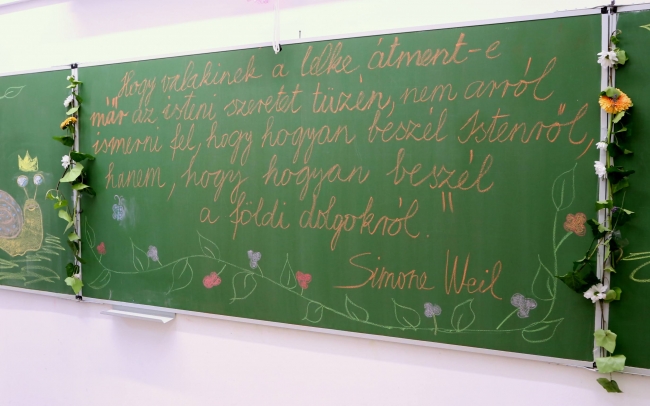 Hogy valakinek a lelke átment-e
már az isteni szeretet tüzén, nem arról
ismerni fel, hogy hogyan beszél Istenről,
hanem, hogy hogyan beszél
a földi dolgokról."
Simone Weil